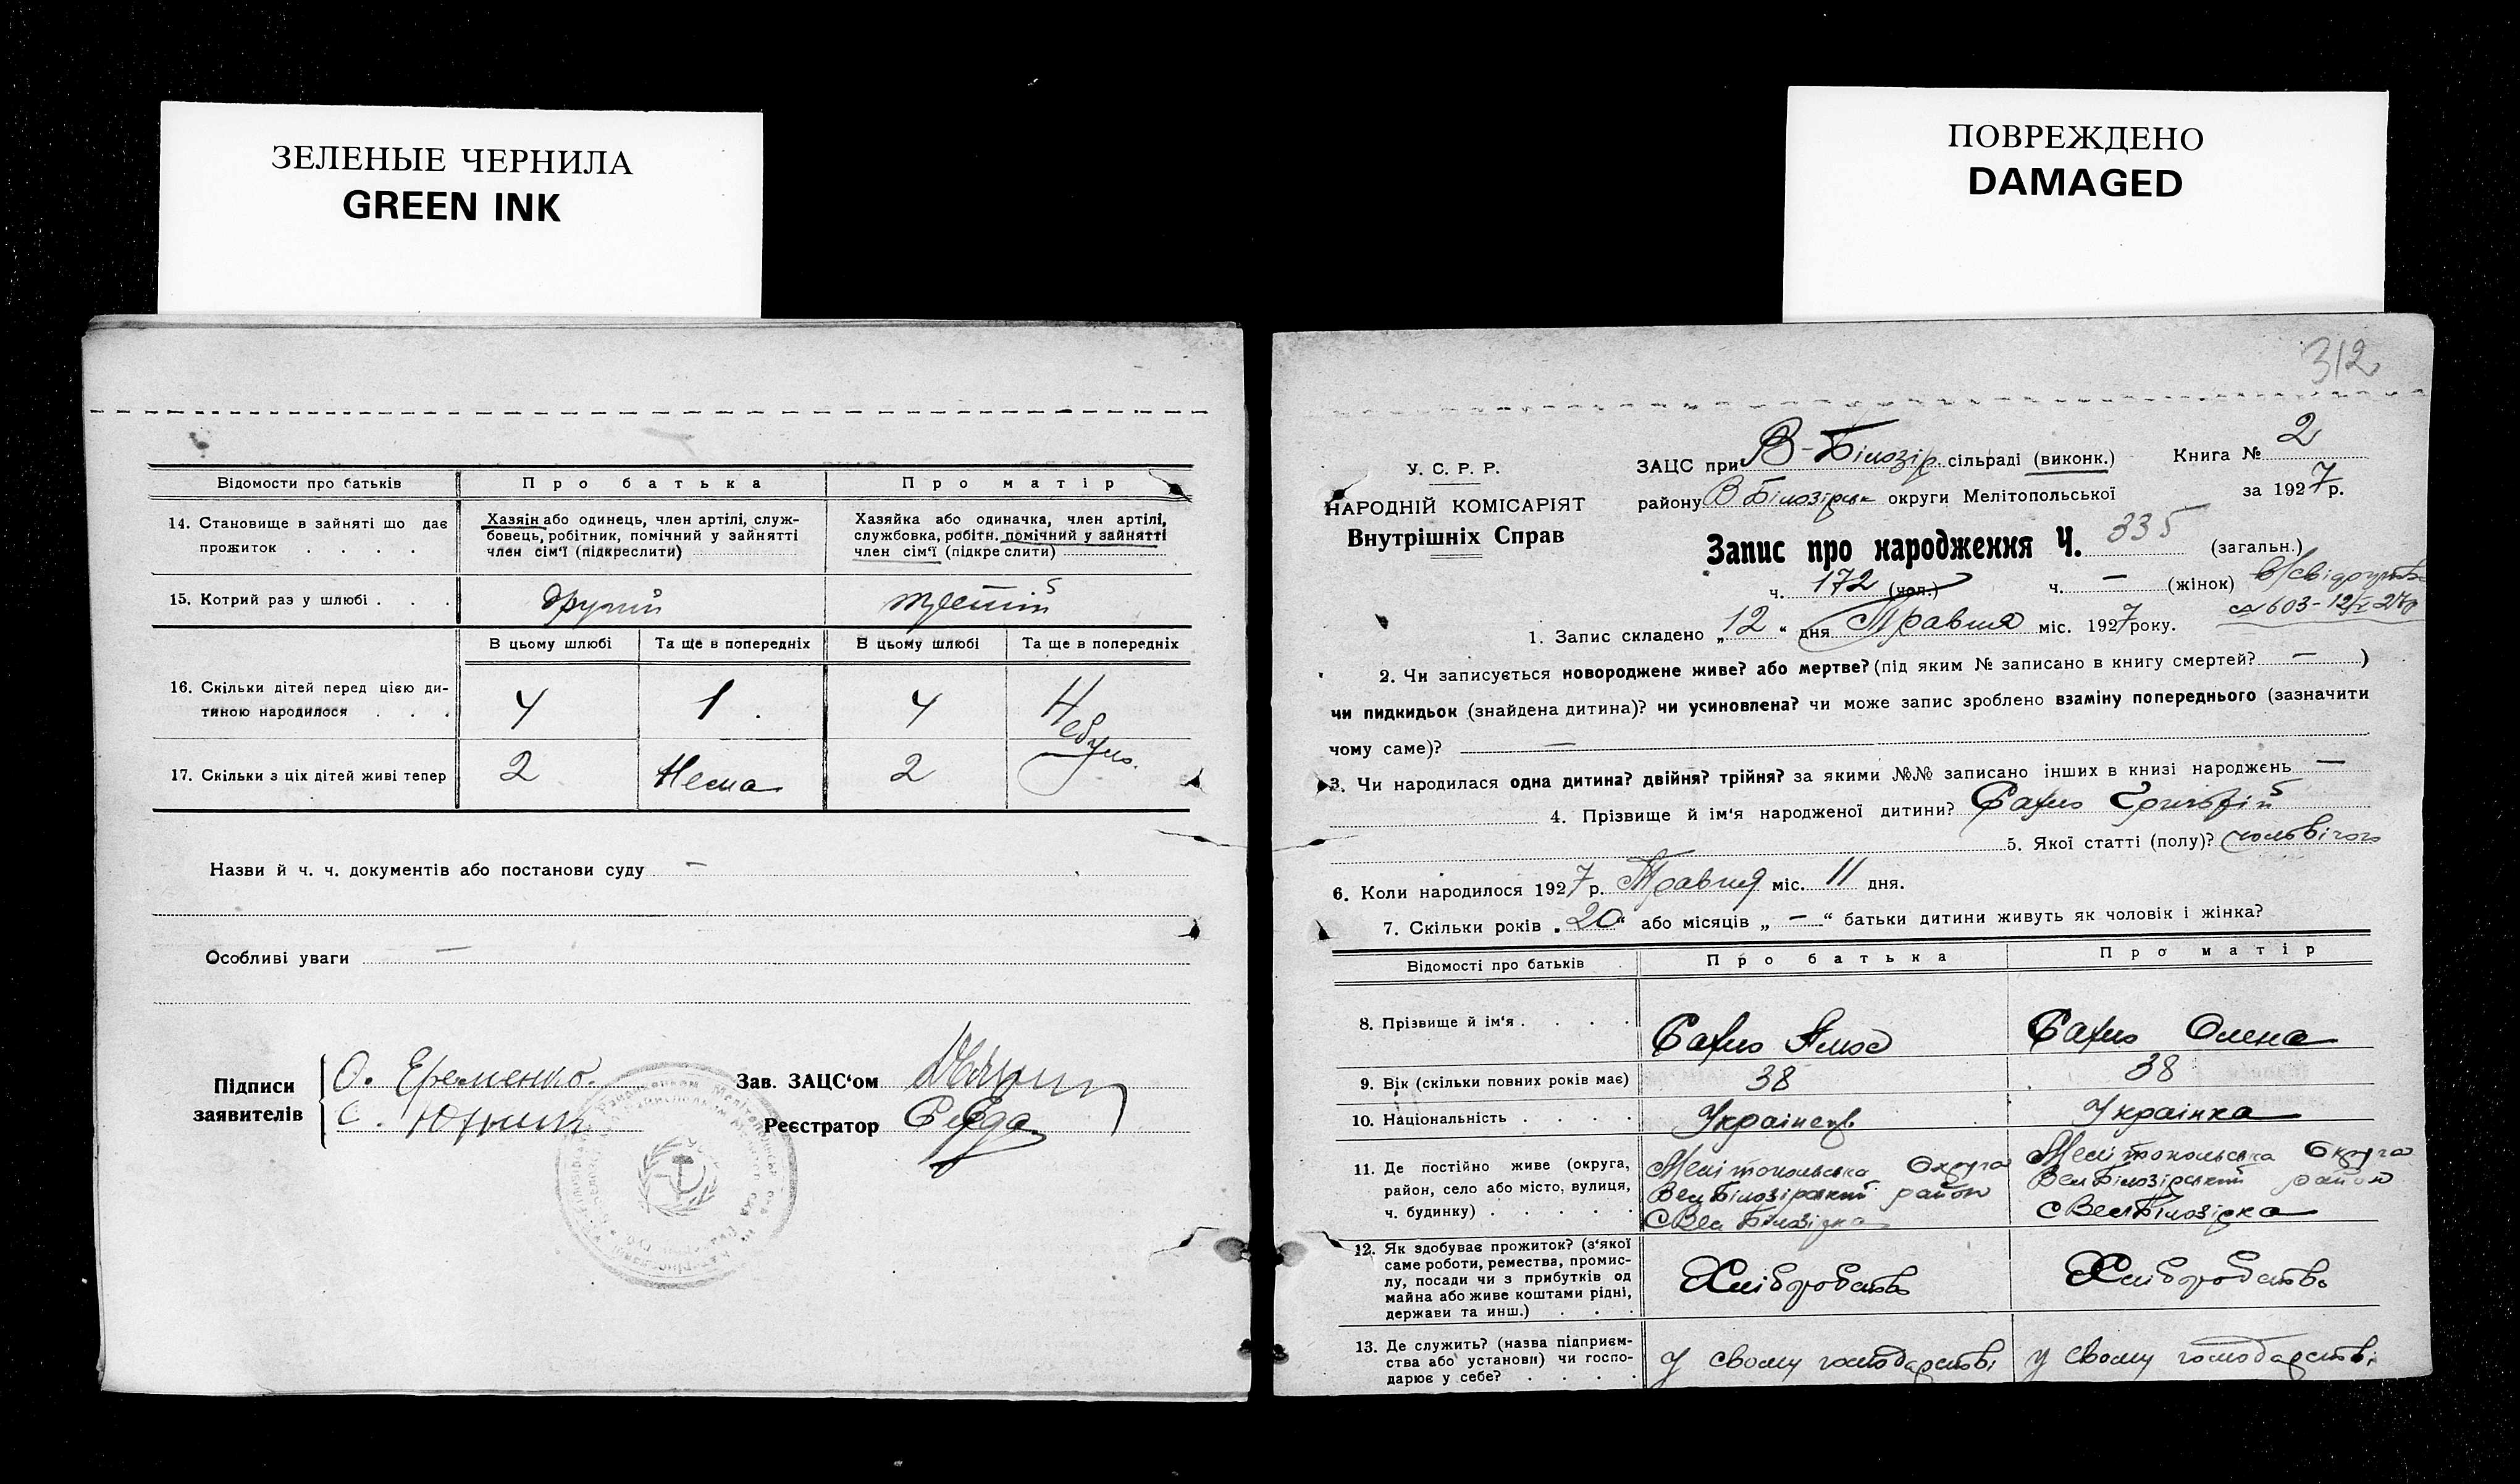 ЗЕЛЕНЫЕ ЧЕРНИЛА
GREEN INK
ПОВРЕЖДЕНО
DAMAGED
Відомости про батьків
Про батька
Про матір
14. Становище в зайняті що дає прожиток . . . .
Хазяїн або одинець, член артілі, служ-
бовець, робітник, помічний у зайнятті
член сім'ї (підкреслити)
Хазяйка або одиначка, член артілі,
службовка, робітн. помічний у зайнятті
член сім'ї (підкреслити)
15. Котрий раз у шлюбі . . .
другий
В цьому шлюбі
Та ще в попередніх
В цьому шлюбі
Та ще в попередніх
16. Скільки дітей перед цією ди-
тиною народилося . . .
4
1.
4
Небуло.
17. Скільки з ціх дітей живі тепер
2
Нема
2
Назви й ч. ч. документів або постанови суду —
Особливі уваги —
Підписи
заявителів
О. Еременко.
С.
Зав. ЗАЦС'ом
Реєстратор
312
У. С. Р. Р.
НАРОДНІЙ КОМІСАРІЯТ
Внутрішніх Справ
ЗАЦС при В-Білозір. сільраді (виконк.)
Книга № 2
району В Білозірськ округи Мелітопольської
за 1927 р.
Запис про народження Ч. 335 (загальн.)
ч. 172 (чол.)
ч. — (жінок)
603-12/
1. Запис складено „12" дня Травня міс. 1927 року.
2. Чи записується новороджене живе? або мертве? (під яким № записано в книгу смертей? — )
чи пидкидьок (знайдена дитина)? чи усиновлена? чи може запис зроблено взаміну попереднього (зазначити
чому саме)? —
3. Чи народилася одна дитина? двійня? трійня? за якими №№ записано інших в книзі народжень —
4. Прізвище й ім'я народженої дитини?
5. Якої статті (полу)? чоловічого
6. Коли народилося 1927 р. Травня міс. 11 дня.
7. Скільки років „20" або місяців „—" батьки дитини живуть як чоловік і жінка?
Відомості про батьків
Про батька
Про матір
8. Прізвище й ім'я . . . .
Олена
9. Вік (скільки повних років має)
38
38
10. Національність . . . .
Українець
Українка
11. Де постійно живе (округа,
район, село або місто, вулиця,
ч. будинку) . . . . .
Мелітопольська Округа
Вел Білозірський район
с Вел Білозірка
Мелітопольська Округа
Вел Білозірський район
с Вел Білозірка
12. Як здобуває прожиток? (з'якої
саме роботи, ремества, промис-
лу, посади чи з прибутків од
майна або живе коштами рідні,
держави та инш.) . . .
Хліборобство
Хліборобство
13. Де служить? (назва підприєм-
ства або установи) чи госпо-
дарює у себе? . . . .
у свому господарстві
у свому господарстві